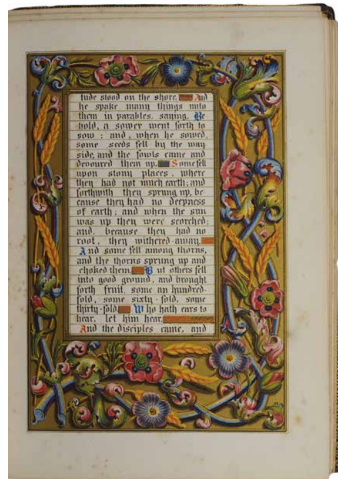 tude stood on the shore. And
he spake many things unto
them in parables, saying, Be
hold, a sower went forth to
sow : and, when he sowed,
some seeds fell by the way
side, and the fowls came and
devoured them up. Some fell
upon stony places, where
they had not much earth; and
forthwith they sprung up, be
cause they had no deepness
of earth; and when the sun
was up they were scorched;
and, because they had no
root, they withered away.
And some fell among thorns,
and the thorns sprung up and
choked them. But others fell
into good ground, and brought
forth fruit, some an hundred-
fold, some sixty-fold, some
thirty-fold. Who hath ears to
hear, let him hear.
And the disciples came, and